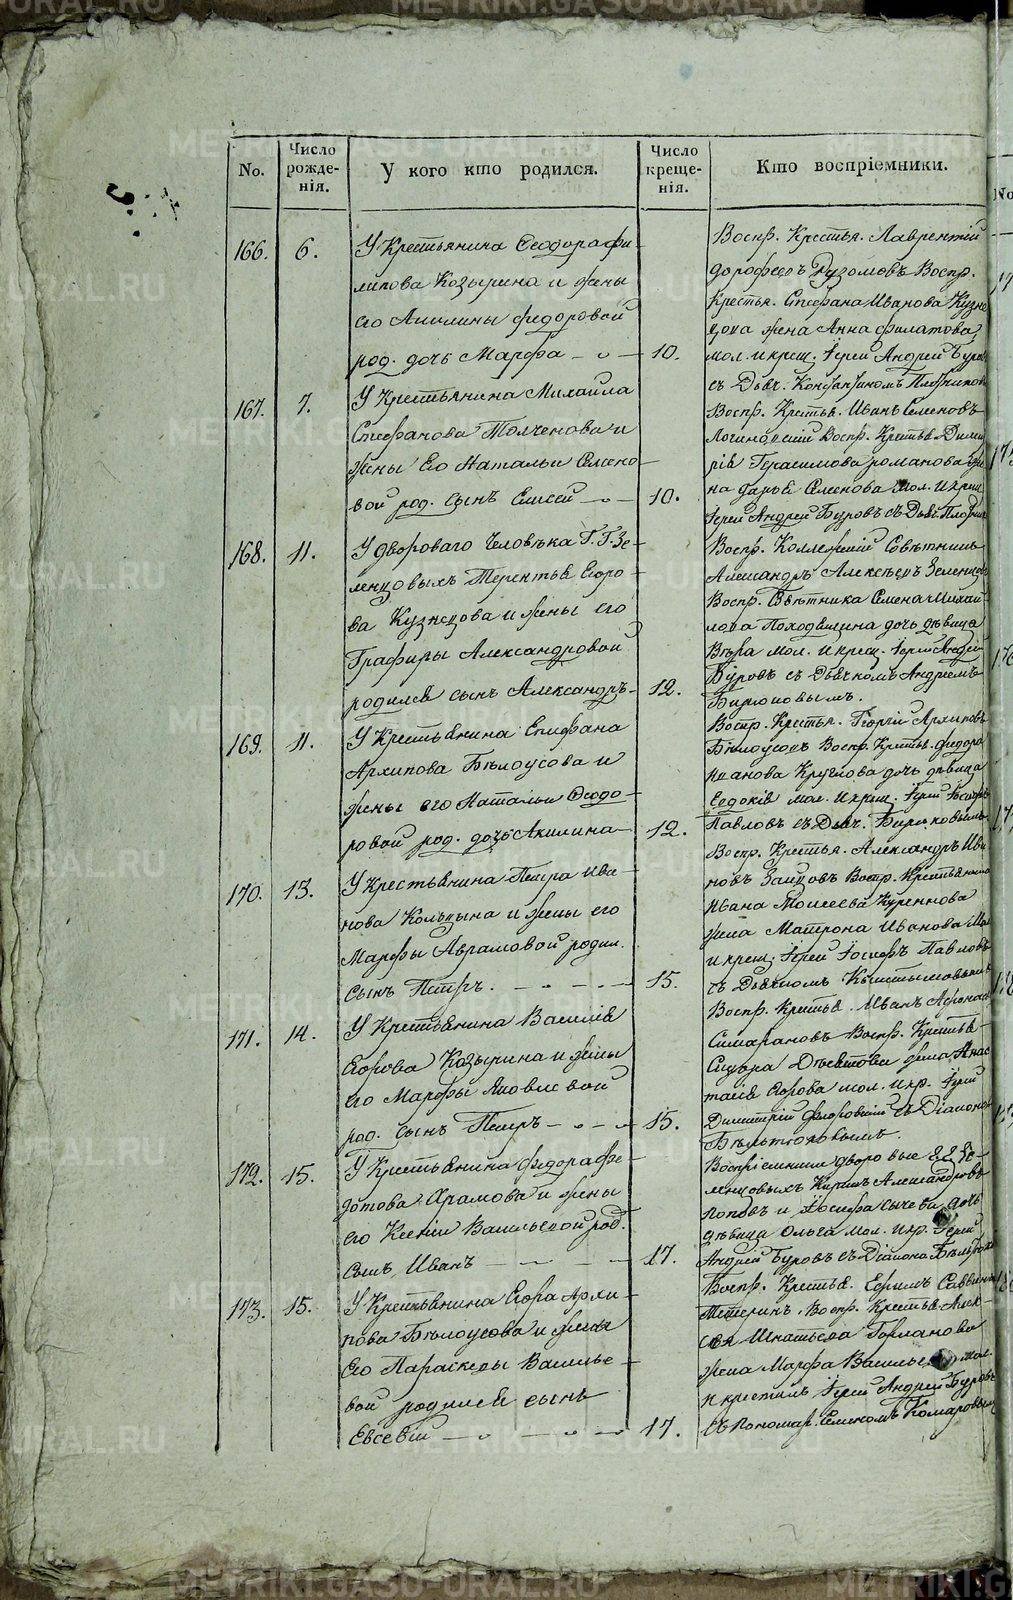 METRIKI.GASO-URAL.RU
No.
Число рожденія.
У кого кто родился.
Число крещенія.
Кто воспріемники.
166. 6.
У Крестьянина Ѳеодора Фи-
липова Козырина и жены
его Акилины Федоровой
род. дочь Марфа 10.
Воспр. Крестья. Лаврентій
Крестья. Стефана Иванова Кузне
цова жена Анна Филатова,
мол. и крещ. Іерей Андрей Буров
съ Дьяч. Константиномъ Плотниковы
167. 7.
У Крестьянина Михаила
Стефанова Толченова и
жены Его Натальи Семено-
вой род. сынъ Елисей 10.
Воспр. Крестья. Иванъ Семеновъ
Логиновскій Воспр. Крестья. Димит
рія Герасимова романова же
на дарья Семенова мол. и крещ.
Іерей Андрей Буровъ съ Дьяч. Плотник
168. 11.
У двороваго Человѣка Г. Г. Зе-
ленцовыхъ Терентья Егоро-
ва Кузнецова и жены его
Графиры Александровой
родился сынъ Александръ 12.
Воспр. Коллежскій Совѣтникъ
Александръ Алексѣевъ Зеленцовъ
Воспр. Совѣтника Семена Михай-
лова Походяшина дочь дѣвица
Вѣра мол. и крещ. Іерей Андрей
Буровъ съ Дьячкомъ Андреемъ
Бирюковымъ.
169. 11.
У Крестьянина Епифана
Архипова Бѣлоусова и
жены его Натальи Ѳеодо-
ровой род. дочь Акилина 12.
Воспр. Крестья. Георгій Архиповъ
Бѣлоусовъ Воспр. Крестья. Федора
Иванова Круглова дочь дѣвица
Евдокія мол. и крещ. Іерей Іосифъ
Павловъ съ Дьяч. Бирюковымъ
170. 13.
У Крестьянина Петра Ива-
нова Кольцына и жены его
Марфы Аврамовой родил.
сынъ Петръ. 15.
Воспр. Крестья. Александръ Ива
новъ Зайцовъ Воспр. Крестьянина
Ивана Моисеева Куреннова
жена Матрона Иванова Мол
и крещ. Іерей Іосифъ Павловъ
съ Дьячкомъ Кыштымовымъ
171. 14.
У Крестьянина Василія
Егорова Козырина и жены
его Марфы Яковлевой
род. сынъ Петръ 15.
Воспр. Крестья. Иванъ Афонась
Симарановъ Воспр. Крестья-
Сидора Девятова жена Анас
тасія Егорова мол. и кр. Іерей
Димитрій Флоровскій съ Діакономъ
Бѣльтюковымъ.
172. 15.
У Крестьянина федора Фе-
дотова Храмова и жены
его Ксеніи Васильевой род.
сынъ Иванъ 17.
Воспріемники дворовые Г. Г. Зе-
ленцовыхъ Кирилъ Александровъ
Поповъ и Іосифа Сычева дочь
дѣвица Ольга мол. и кр. Іерей
Андрей Буровъ съ Діакона Бѣльтюко
173. 15.
У Крестьянина Егора Архи-
пова Бѣлоусова и жены
Его Параскевы Василье-
вой родился сынъ
Евсевій 17.
Воспр. Крестья. Ефимъ Саввинъ
Метелинъ. Воспр. Крестья. Алек-
сѣя Игнатьева Горманова
жена Марфа Василье мол-
и крестилъ Іерей Андрей Буровъ
съ Пономар. Семеномъ Комаровым